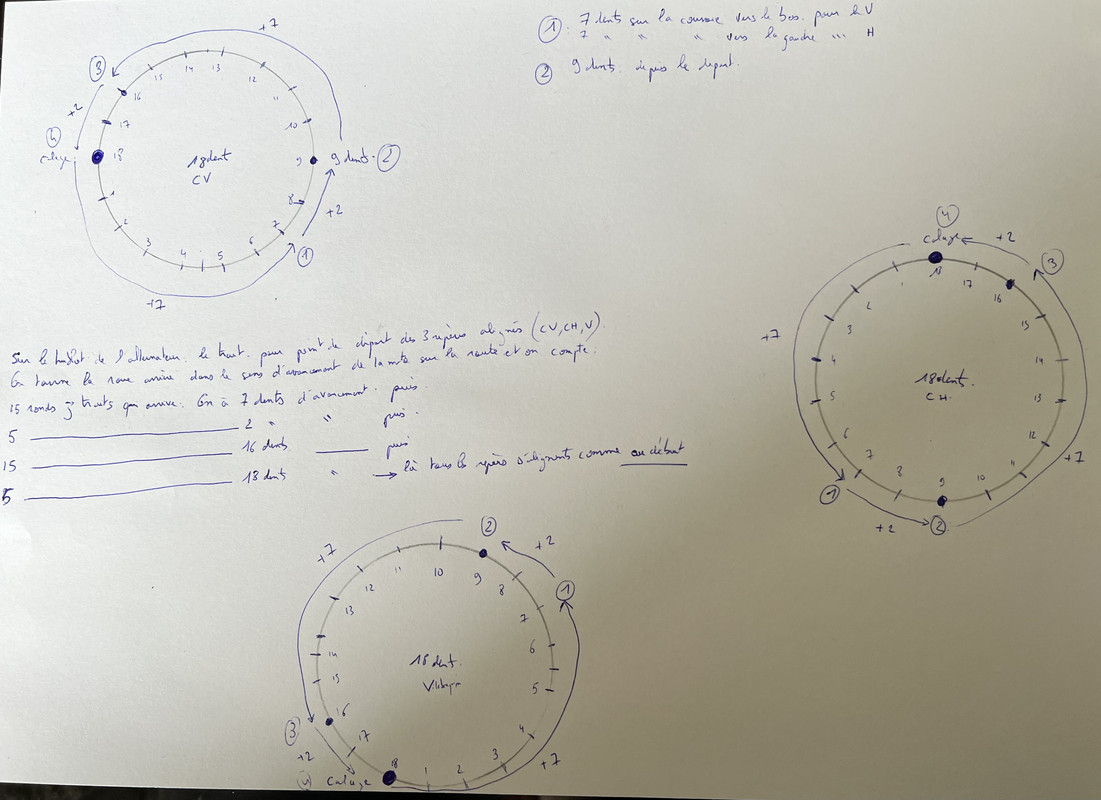 ① 7 dents sur la couronne vers le bas. pour le V
7 " " " vers la gauche ... H
② 9 dents depuis le depart.
+7
③
14 13
15 12
16 11
+2
17 10
④
calage
18
18 dent
CV
9
9 dents ②
1
8
+2
2 7
3 4 5 6
①
+7
Sur le de l'allumateur. le trait. pour point de départ des 3 repères alignés (CV, CH, V).
On tourne la roue arrière dans le sens d'avancement de la moto sur la route et on compte.
15 ronds 3 traits qui arrive. On à 7 dents d'avancement. puis
5 2 " " puis
15 16 dents puis
5 18 dents " → là tous les repères s'alignents comme au début
④
calage
+2
③
18
1 17
2 16
+7
3 15
4 14
18 dent.
CH.
5 13
6 12
7 11
8 9 10
①
+2
②
+7
②
+2
+7
①
10
11 9
12 8
13 7
14 6
18 dent.
Vilebrequin
15 5
16 4
③
17 3
+2
18 1 2
+7
④ calage